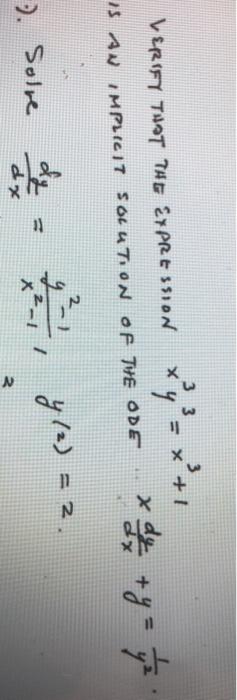 VERIFY THAT THE EXPRESSION x³y³ = x³ + 1
IS AN IMPLICIT SOLUTION OF THE ODE .. x dy/dx + y = 1/y² .
). Solve dy/dx = y²-1/x²-1 , y(2) = 2 .
2